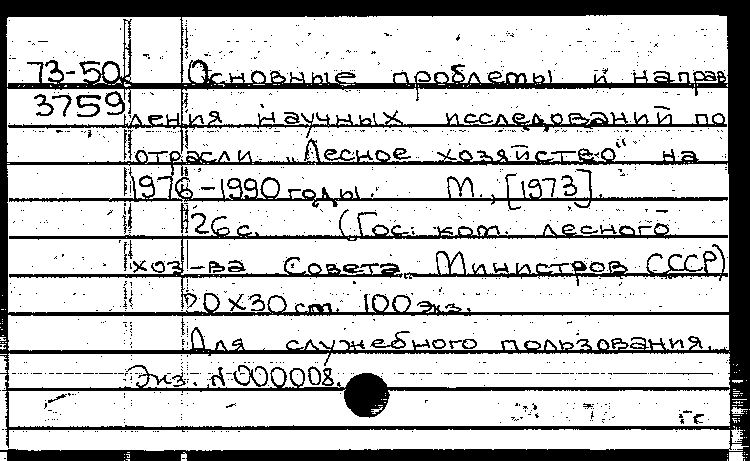 73-50 Основные проблемы и направ
3759 ления научных исследований по
отрасли „Лесное хозяйство“ на
1976-1990 годы. М., [1973].
26 с. (Гос. ком. лесного
хоз-ва Совета Министров СССР)
20х30 см. 100 экз.
Для служебного пользования.
Экз. №000008.
гс